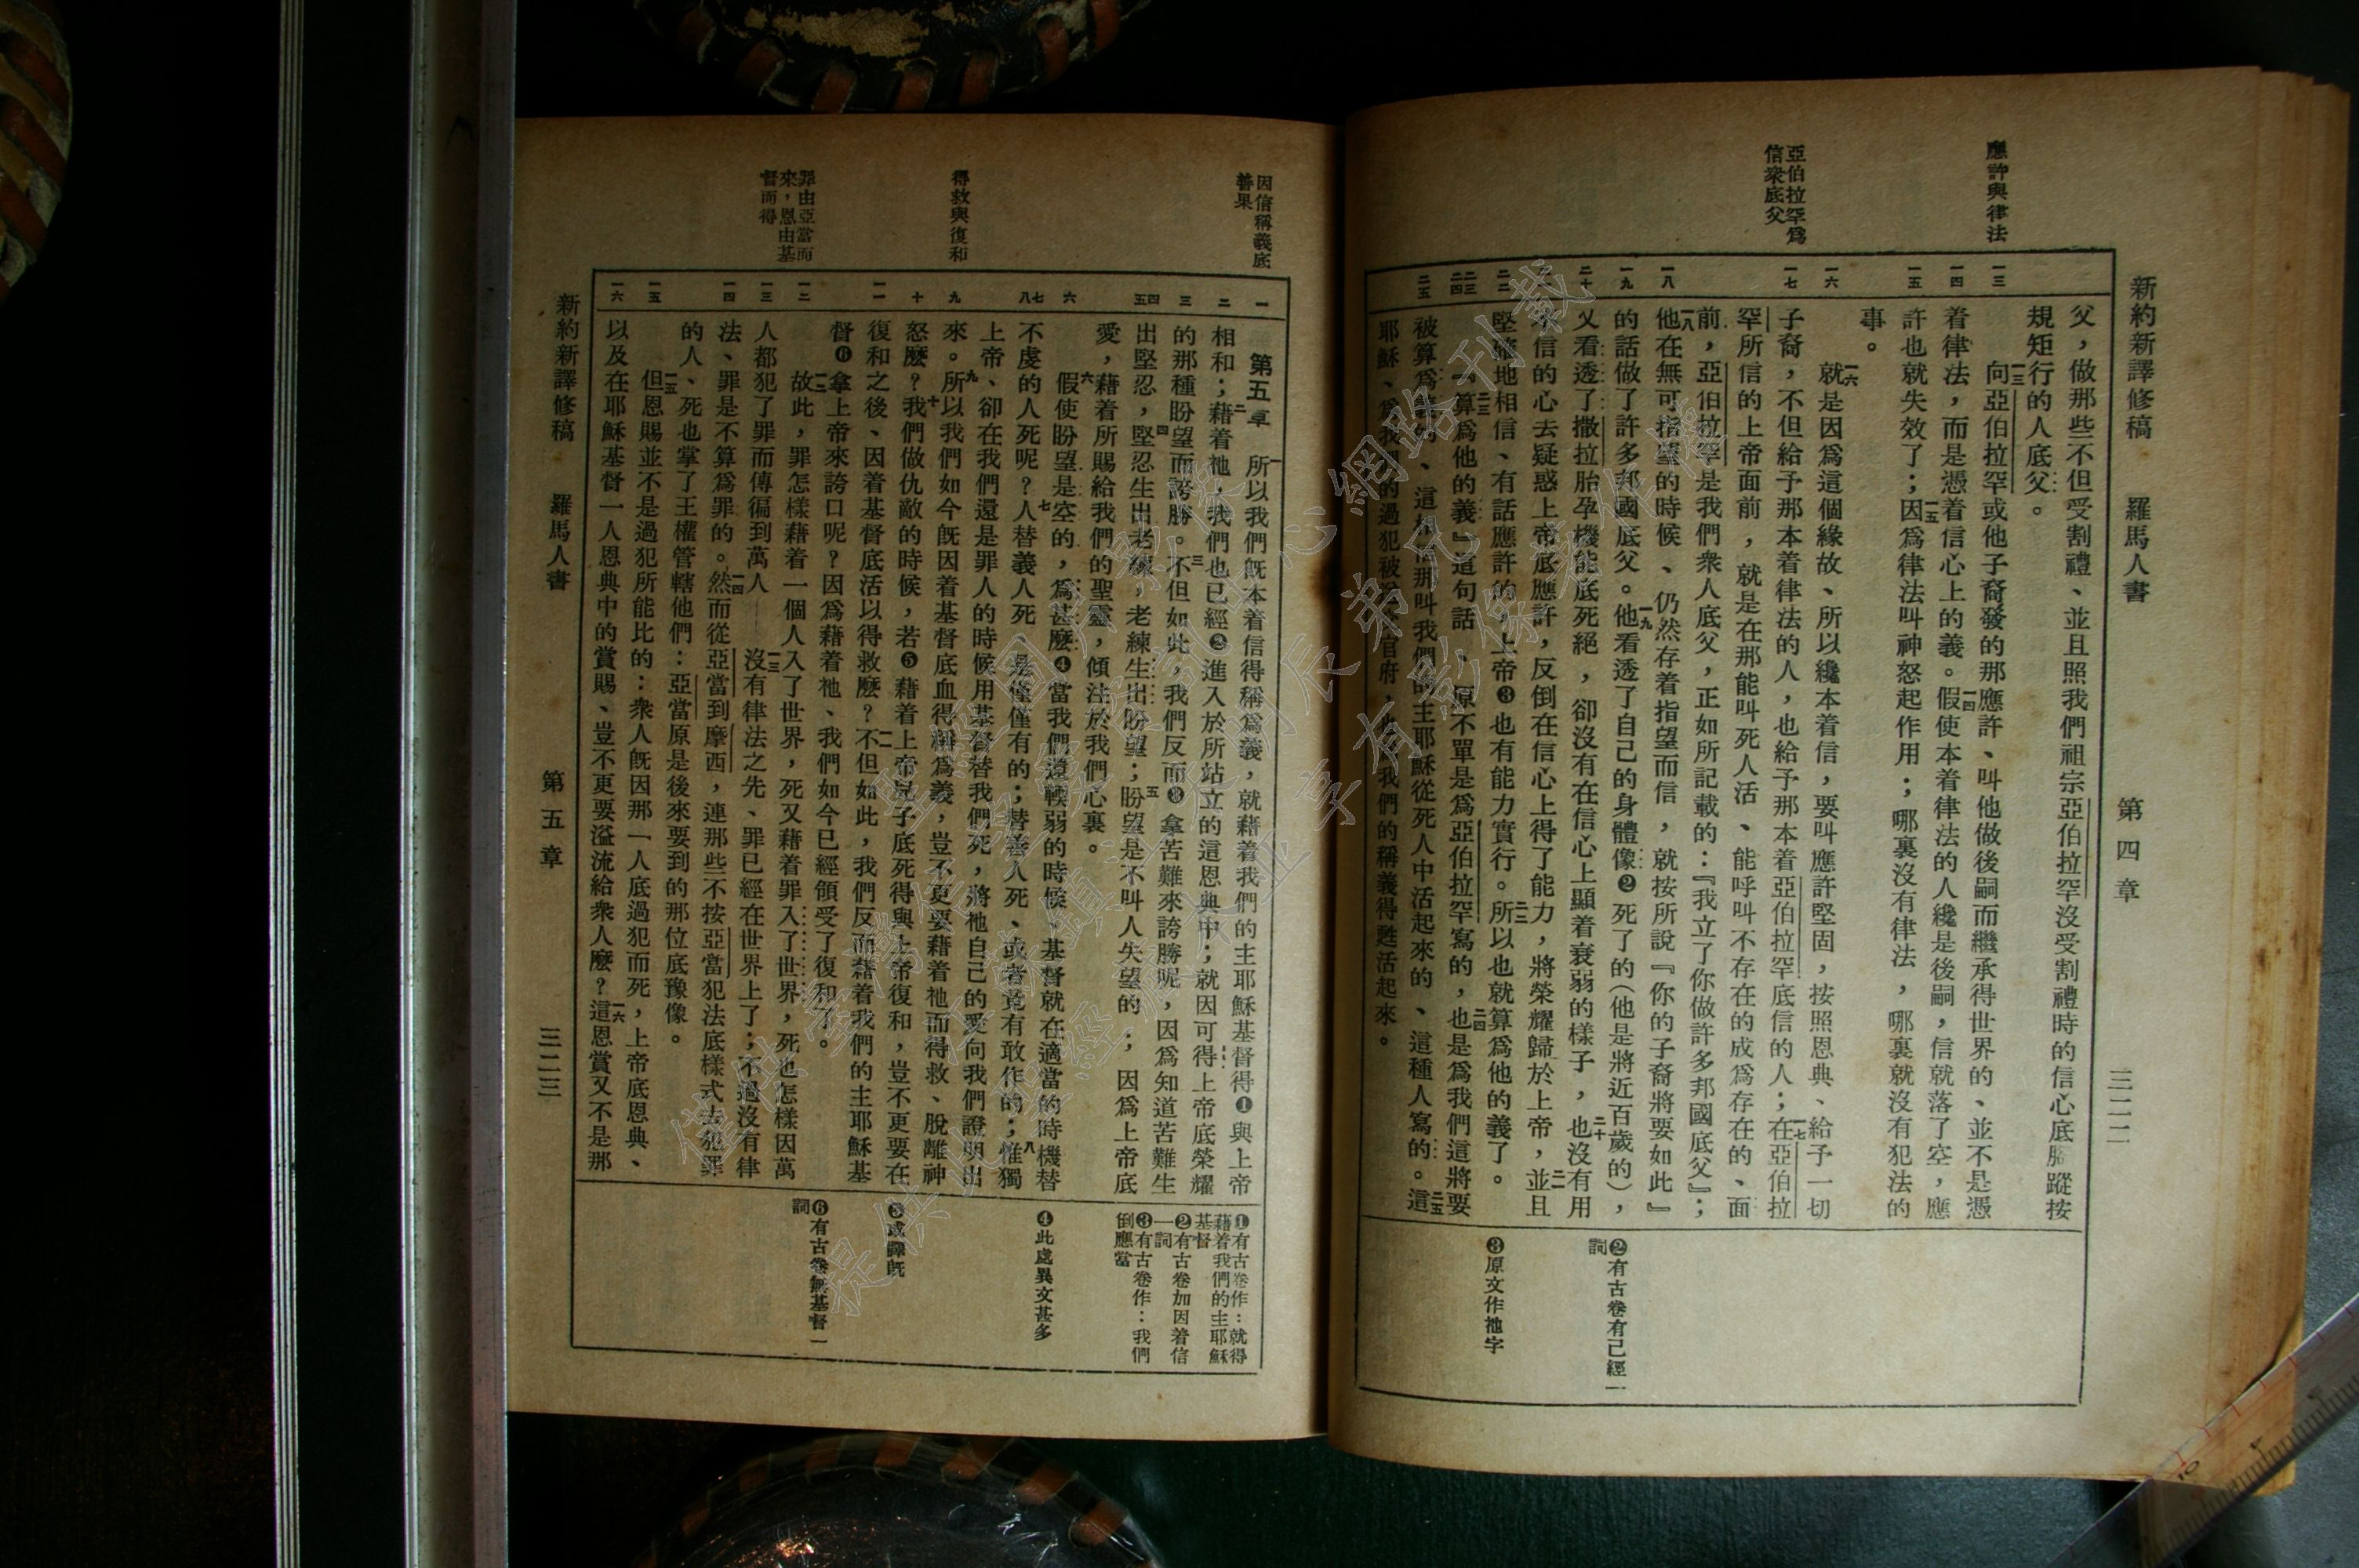 新約新譯修稿 羅馬人書 第四章 三二二
應許與律法
亞伯拉罕爲
信衆底父
一三
一四
一五
一六
一七
一八
一九
二十
二二
二三
二四
二五
父，做那些不但受割禮、並且照我們祖宗亞伯拉罕沒受割禮時的信心底腳蹤按
規矩行的人底父。
一三向亞伯拉罕或他子裔發的那應許、叫他做後嗣而繼承得世界的、並不是憑
着律法，而是憑着信心上的義。一四假使本着律法的人纔是後嗣，信就落了空，應
許也就失效了；一五因爲律法叫神怒起作用；哪裏沒有律法，哪裏就沒有犯法的
事。
一六就是因爲這個緣故、所以纔本着信，要叫應許堅固，按照恩典、給予一切
子裔，不但給予那本着律法的人，也給予那本着亞伯拉罕底信的人；一七在亞伯拉
罕所信的上帝面前，就是在那能叫死人活、能呼叫不存在的成爲存在的、面
前，亞伯拉罕是我們衆人底父，正如所記載的：『我立了你做許多邦國底父』；
一八他在無可指望的時候、仍然存着指望而信，就按所說『你的子裔將要如此』
的話做了許多邦國底父。一九他看透了自己的身體像❷死了的（他是將近百歲的），
又看透了撒拉胎孕機能底死絕，卻沒有在信心上顯着衰弱的樣子，二十也沒有用
不信的心去疑惑上帝底應許，反倒在信心上得了能力，將榮耀歸於上帝，二一並且
堅確地相信、有話應許的，上帝❸也有能力實行。二二所以也就算爲他的義了。
二三『算爲他的義』這句話、原不單是爲亞伯拉罕寫的，二四也是爲我們這將要
被算爲義的、這相信那叫我們的主耶穌從死人中活起來的、這種人寫的。二五這
耶穌、爲我們的過犯被送官府，也爲我們的稱義得甦活起來。
❷有古卷有已經一
詞
❸原文作祂字
因信稱義底
善果
得救與復和
罪由亞當而
來，恩由基
督而得
一
二
三
四
五
六
七
八
九
十
一一
一二
一三
一四
一五
一六
第五章 一所以我們既本着信得稱爲義，就藉着我們的主耶穌基督得❶與上帝
相和；二藉着祂，我們也已經❷進入於所站立的這恩典中；就因可得上帝底榮耀
的那種盼望而誇勝。三不但如此，我們反而❸拿苦難來誇勝呢，因爲知道苦難生
出堅忍，四堅忍生出老練，老練生出盼望；五盼望是不叫人失望的；因爲上帝底
愛，藉着所賜給我們的聖靈，傾注於我們心裏。
六假使盼望是空的，爲甚麼❹當我們還輭弱的時候、基督就在適當的時機替
不虔的人死呢？七人替義人死、是僅僅有的；替善人死、或者竟有敢作的；八惟獨
上帝、卻在我們還是罪人的時候用基督替我們死，將祂自己的愛向我們證明出
來。九所以我們如今既因着基督底血得稱爲義，豈不更要藉着祂而得救、脫離神
怒麼？十我們做仇敵的時候，若❺藉着上帝兒子底死得與上帝復和，豈不更要在
復和之後、因着基督底活以得救麼？一一不但如此，我們反而藉着我們的主耶穌基
督❻拿上帝來誇口呢？因爲藉着祂、我們如今已經領受了復和了。
一二故此，罪怎樣藉着一個人入了世界，死又藉着罪入了世界，死也怎樣因萬
人都犯了罪而傳徧到萬人——一三沒有律法之先、罪已經在世界上了；不過沒有律
法、罪是不算爲罪的。一四然而從亞當到摩西，連那些不按亞當犯法底樣式去犯罪
的人、死也掌了王權管轄他們：亞當原是後來要到的那位底豫像。
一五但恩賜並不是過犯所能比的：衆人既因那一人底過犯而死，上帝底恩典、
以及在耶穌基督一人恩典中的賞賜、豈不更要溢流給衆人麼？一六這恩賞又不是那
❶有古卷作：就得
藉着我們的主耶穌
基督
❷有古卷加因着信
一詞
❸有古卷作：我們
倒應當
❹此處異文甚多
❺或譯既
❻有古卷無基督一
詞
新約新譯修稿 羅馬人書 第五章 三二三